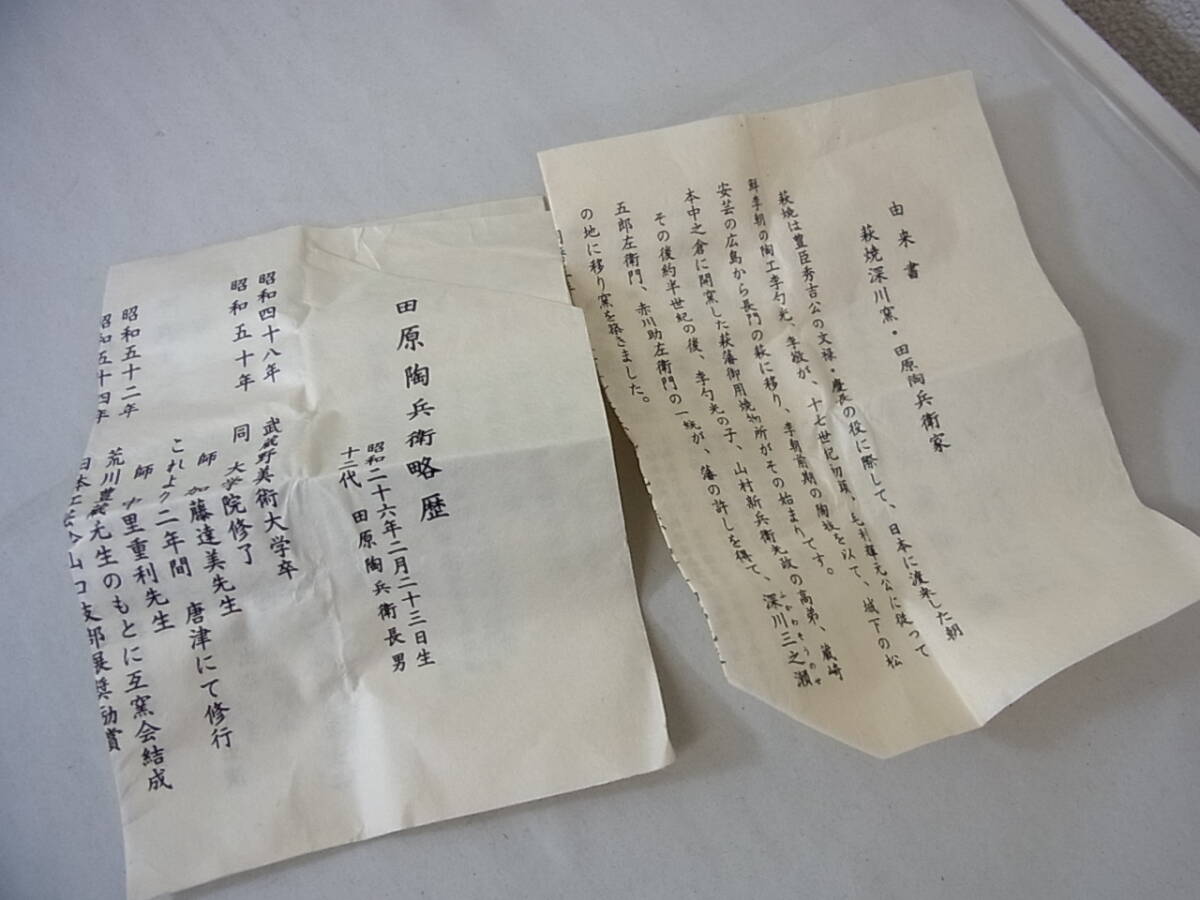 由来書
萩焼深川窯・田原陶兵衛家
萩焼は豊臣秀吉公の文禄・慶長の役に際して、日本に渡来した朝
鮮李朝の陶工李勺光、李敬が、十七世紀初頭、毛利輝元公に従って
安芸の広島から長門の萩に移り、李朝前期の陶技を以て、城下の松
本中之倉に開窯した萩藩御用焼物所がその始まりです。
その後約半世紀の後、李勺光の子、山村新兵衛光政の高弟、蔵崎
五郎左衛門、赤川助左衛門の一統が、藩の許しを得て、深川三之瀬
ふかわそうのせ
の地に移り窯を築きました。
田原陶兵衛略歴
昭和二十六年二月二十三日生
十二代 田原陶兵衛長男
昭和四十八年 武蔵野美術大学卒
昭和五十年 同 大学院修了
師 加藤達美先生
これより二年間 唐津にて修行
昭和五十二年 師 中里重利先生
荒川豊蔵先生のもとに互窯会結成
昭和五十四年 日本工芸会山口支部展奨励賞